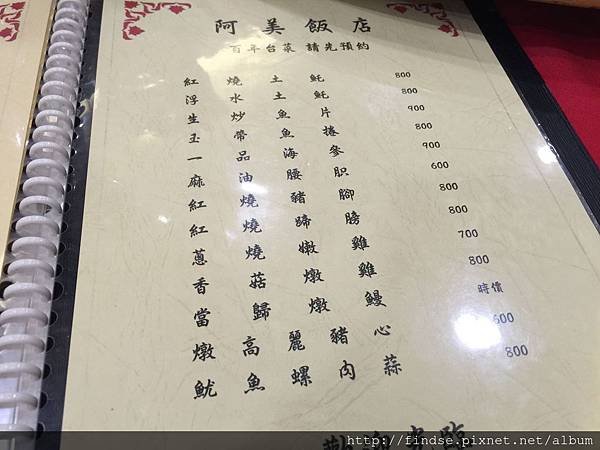 阿美飯店
百年台菜 請先預約
紅燒土魠 800
浮水土魠 800
生炒魚片 900
玉帶魚捲 800
一品海參 900
麻油腰胑 600
紅燒豬腳 800
紅燒蹄膀 800
蔥燒嫩雞 700
香菇燉雞 800
當歸燉鰻 時價
燉高麗豬心 600
魷魚螺肉蒜 800
歡迎光臨
http://findse.pixnet.net/album